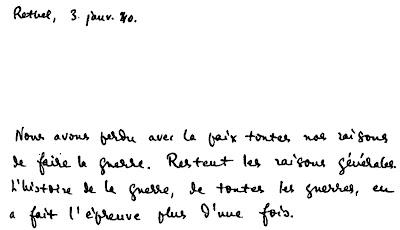 Rethel, 3. janv. 40.
Nous avons perdu avec la paix toutes nos raisons
de faire la guerre. Restent les raisons générales.
L'histoire de la guerre, de toutes les guerres, en
a fait l'épreuve plus d'une fois.